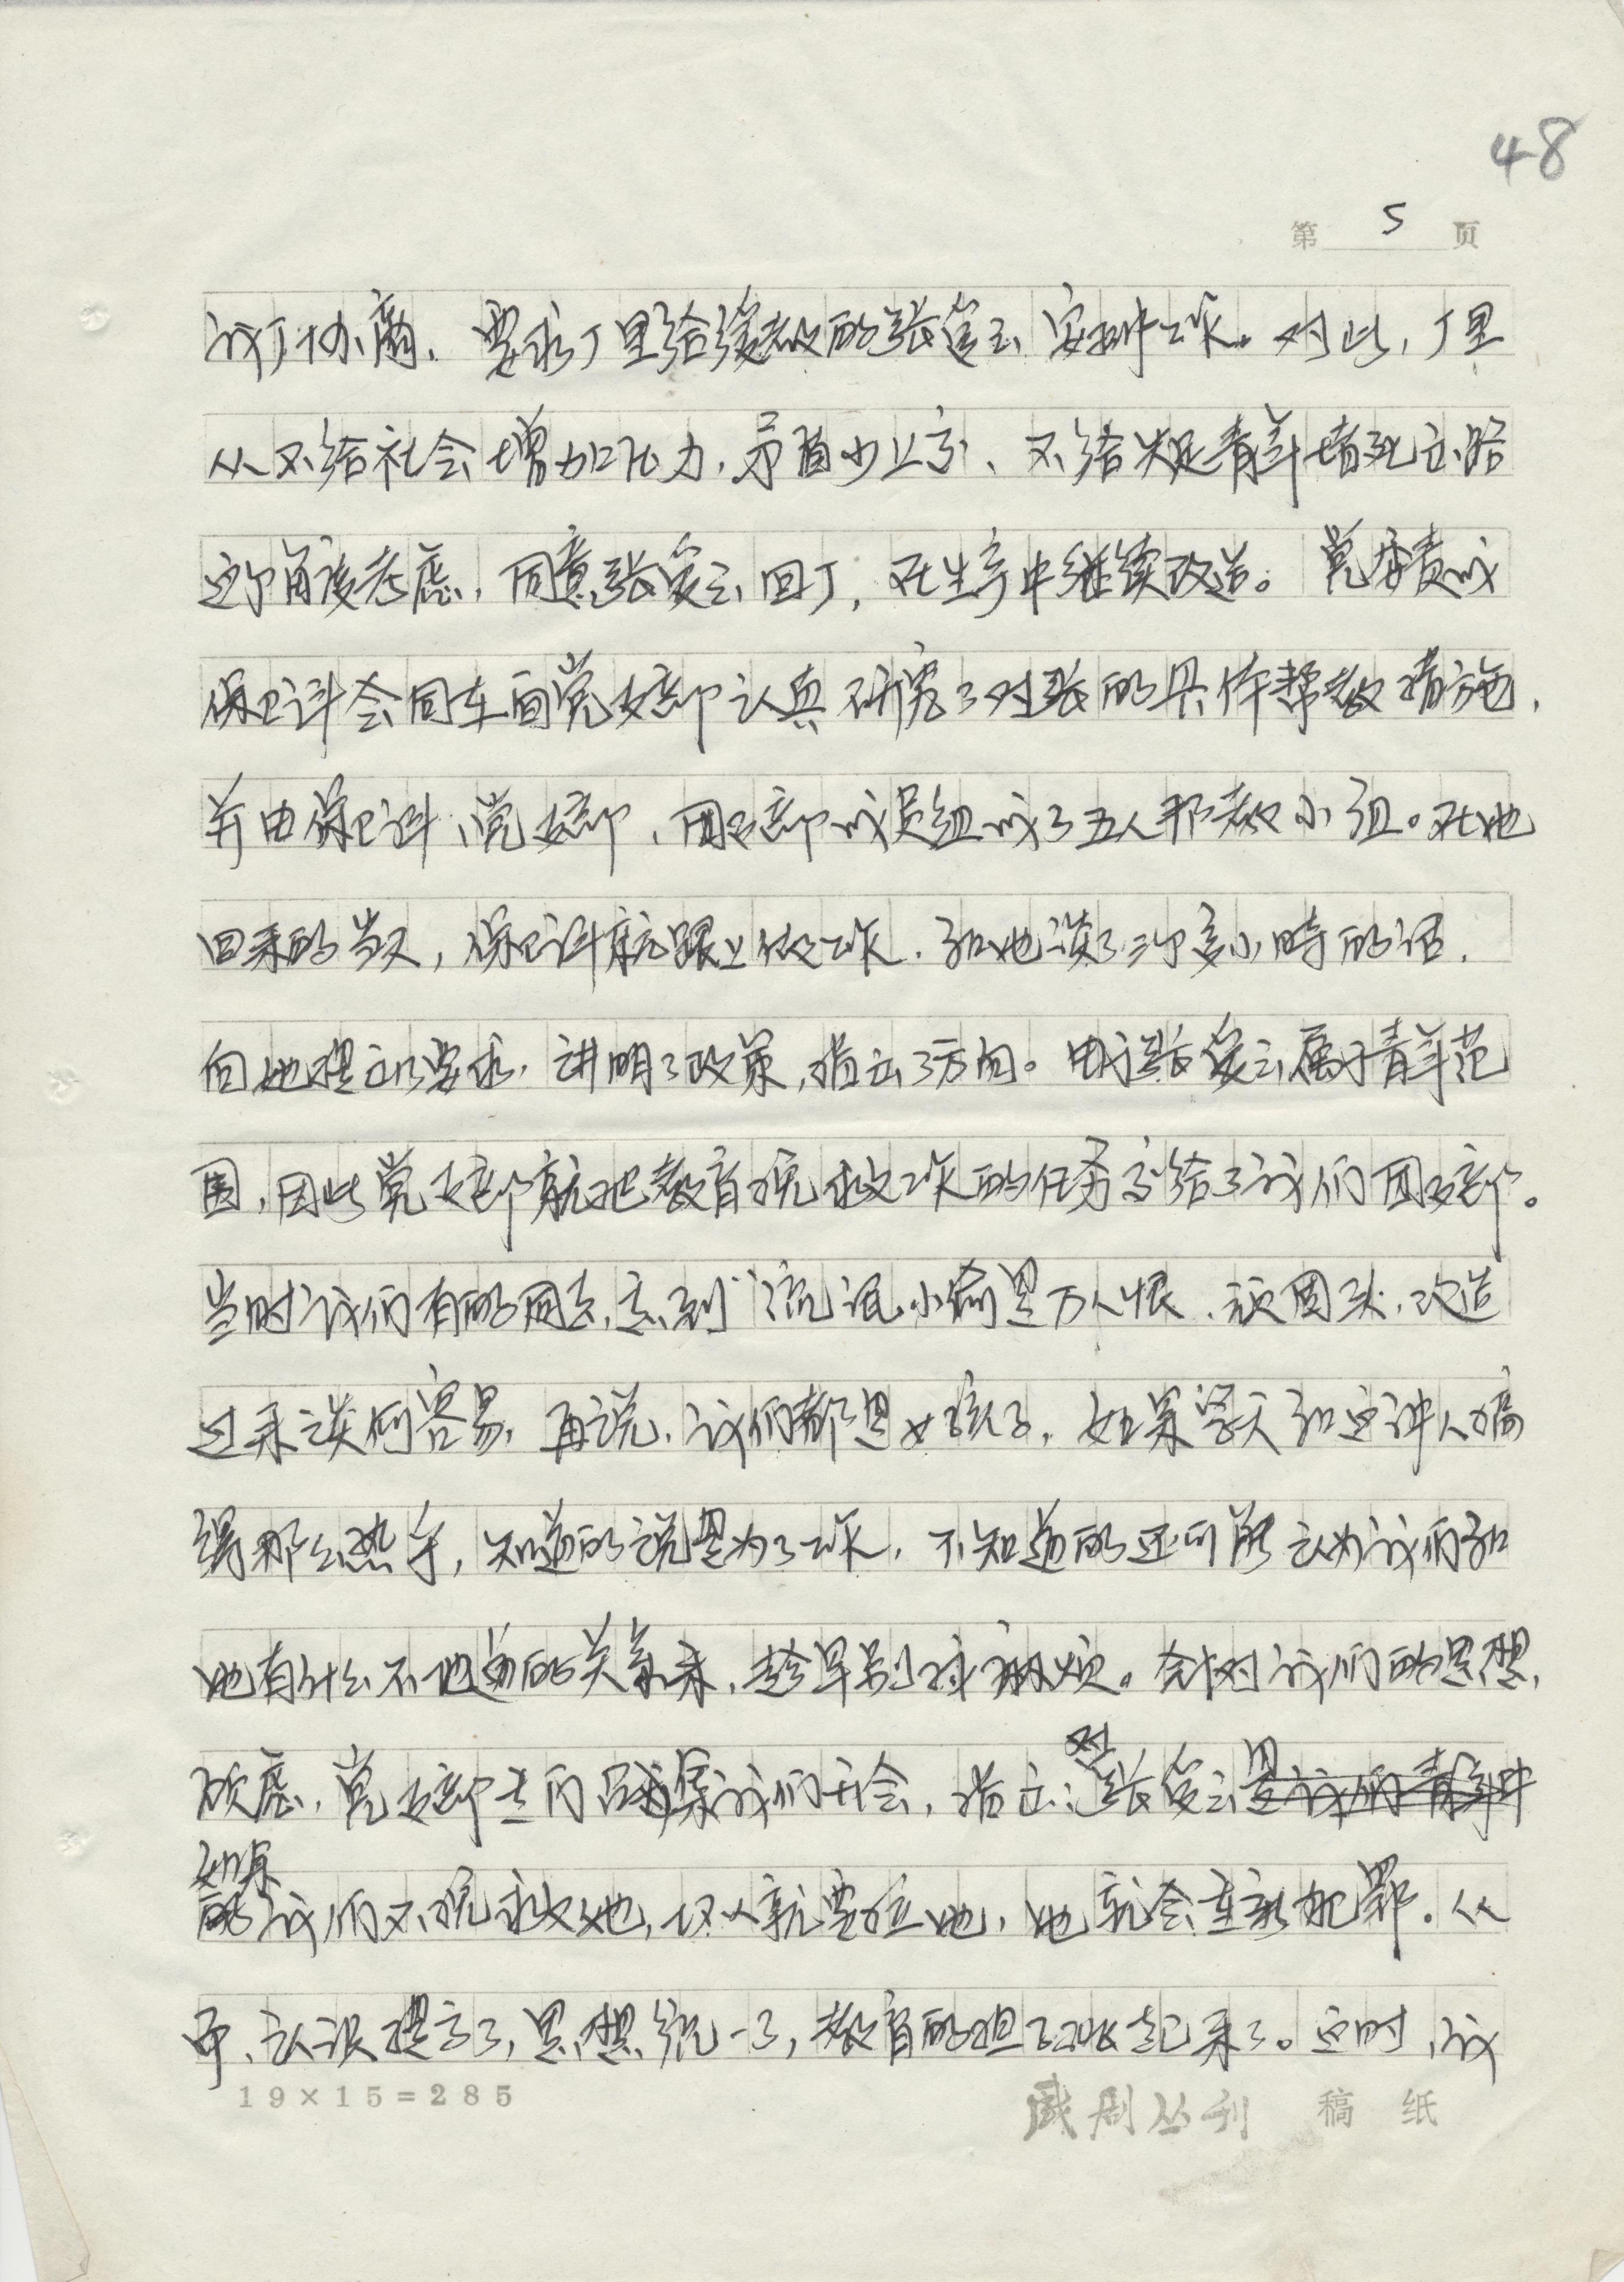 48
第 5 页
我厂协商，要求厂里给缓教的张俊云安排工作。对此，厂里
从不给社会增加压力，矛盾少上交、不给失足青年堵死出路
这个角度考虑，同意张俊云回厂，在生产中继续改造。党委责成
保卫科会同车间党支部认真研究了对张的具体帮教措施，
并由保卫科、党支部、团支部成员组成了五人帮教小组。在她
回来的当天，保卫科就跟上做工作，和她谈了三个多小时的话，
向她提出了要求，讲明了政策，指出了方向。由于张俊云属于青年范
围，因此党支部就把教育挽救工作的任务交给了我们团支部。
当时我们有的同志，感到“流氓小偷是万人恨，顽固头，改造
过来谈何容易，再说，我们都是女孩子，如果整天和这种人搞
得那么热乎，知道的说是为了工作，不知道的还可能认为我们和
她有什么不地道的关系来，趁早别找麻烦。针对我们的思想
顾虑，党支部专门召集我们开会，指出：对张俊云是我们青年中
如果
的我们不挽救她，坏人就要拉她，她就会重新犯罪。从
而，认识提高了，思想统一了，教育的担子挑起来了。这时，我
19×15=285
戏剧丛刊 稿 纸